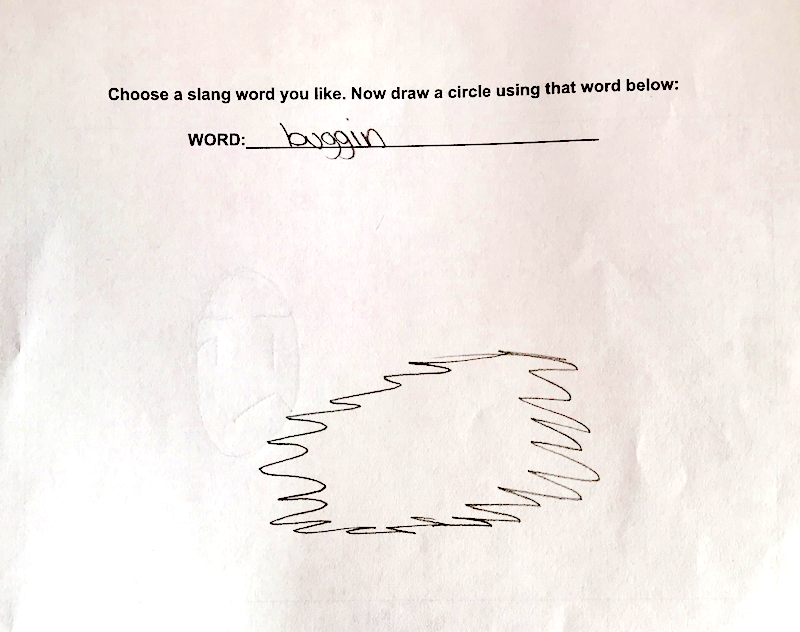 Choose a slang word you like. Now draw a circle using that word below:
WORD: buggin